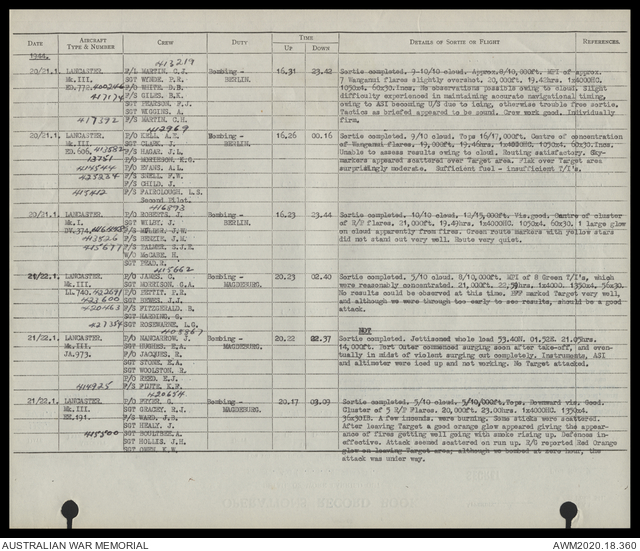 DATE AIRCRAFT TYPE & NUMBER CREW DUTY TIME UP DOWN DETAILS OF SORTIE OR FLIGHT REFERENCES.
1944.
413219
20/21.1. LANCASTER F/L MARTIN, C.J. Bombing - 16.31 23.42 Sortie completed. 9-10/10 cloud. Approx. 8/10,000ft. MPI of approx.
Mk.III. SGT WYNDE, P.R. BERLIN. 7 Wanganui flares slightly overshot. 20,000ft. 19.42hrs. 1x4000HC.
ED.772. F/O WHITE, D.B. 1050x4. 60x30.incs. No observations possible owing to cloud. Slight
417174 F/S GILES, B.N. difficulty experienced in maintaining accurate navigational timing,
SGT PEARSON, F.J. owing to ASI becoming U/S due to icing, otherwise trouble free sortie.
SGT WIGGINS, A. Tactics as briefed appeared to be sound. Crew work good. Individually
417392 F/S MARTIN, C.H. firm.
412969
20/21.1. LANCASTER. P/O KELL, A.E. Bombing - 16.26 00.16 Sortie completed. 9/10 cloud. Tops 16/17,000ft. Centre of concentration
Mk.III. SGT CLARK, J. BERLIN. of Wanganui flares. 19,000ft. 19.46hrs. 1x4000HC. 1050x4. 60x30.Incs.
ED.606. F/S HAGAR, J.L. Unable to assess results owing to cloud. Routing satisfactory. Sky-
F/O MORIESON, K.G. markers appeared scattered over Target area. Flak over Target area
414544 F/O EVANS, A.L. surprisingly moderate. Sufficient fuel - insufficient T/I's.
425234 F/S SHELL, F.W.
F/S CHILD, J.
415412 F/S FAIRCLOUGH, L.S.
Second Pilot.
416893
20/21.1. LANCASTER. P/O ROBERTS, J. Bombing - 16.23 23.44 Sortie completed. 10/10 cloud. 12/15,000ft. Vis.good. Centre of cluster
Mk.I. SGT WILBY, J. BERLIN. of R/P flares. 21,000ft. 19.49hrs. 1x4000HC. 1050x4. 60x30. 1 large glow
DV.374. F/S MULLER, J.W. on cloud apparently from fires. Green route markers with yellow stars
413826 F/S BENBIM, J.W. did not stand out very well. Route very quiet.
415677 F/S PALMER, S.J.E.
W/O McCABE, H.
SGT READ, R.
415662
21/22.1. LANCASTER. F/O JAMES, G. Bombing - 20.23 02.40 Sortie completed. 5/10 cloud. 8/10,000ft. MPI of 8 Green T/I's, which
Mk.III. SGT MORRISON, G.A. MAGDEBURG. were reasonably concentrated. 21,000ft. 22.59hrs. 1x4000. 1350x4. 56x30.
LL.740. F/O PETTIT, F.R. No results could be observed at this time. PFF marked Target very well,
423600 SGT HYNES, J.J. and although we were through too early to see results, should be a good
420463 F/S FITZGERALD, B. attack.
SGT HARDING, G.
427354 SGT ROSEWARNE, L.G.
408867 NOT
21/22.1. LANCASTER. F/O MANCARROW, J. Bombing - 20.22 22.37 Sortie completed. Jettisoned whole load 53.40N. 01.52E. 21.05hrs.
Mk.III. SGT HUGHES, E.A. MAGDEBURG. 14,000ft. Port Outer commenced surging soon after take-off, and even-
JA.973. F/O JACQUES, R. tually in midst of violent surging cut completely. Instruments, ASI
SGT STONE, E.A. and altimeter were iced up and not working. No Target attacked.
SGT WOOLSTON, R.
P/O REED, E.J.
414925 F/S FLUTE, K.F.
420654
21/22.1. LANCASTER. P/O FRYER, G. Bombing - 20.17 03.09 Sortie completed. 5/10 cloud. 5/10,000ft. Tops. Downward viz. Good.
Mk.III. SGT GRACEY, R.J. MAGDEBURG. Cluster of 5 R/P Flares. 20,000ft. 23.00hrs. 1x4000HC. 1350x4.
EE.191. F/S WARD, J.B. 56x30IB. A few incends. were burning. Some sticks were scattered.
SGT HEALY, J. After leaving Target a good orange glow appeared giving the appear-
415300 SGT BOULTBEE, A. ance of fires getting well going with smoke rising up. Defences in-
SGT HOLLIS, J.H. effective. Attack seemed scattered on run up. R/G reported Red Orange
SGT OWEN, K.W. glow on leaving Target area, although we bombed at zero hour, the
attack was under way.
AUSTRALIAN WAR MEMORIAL AWM2020.18.360